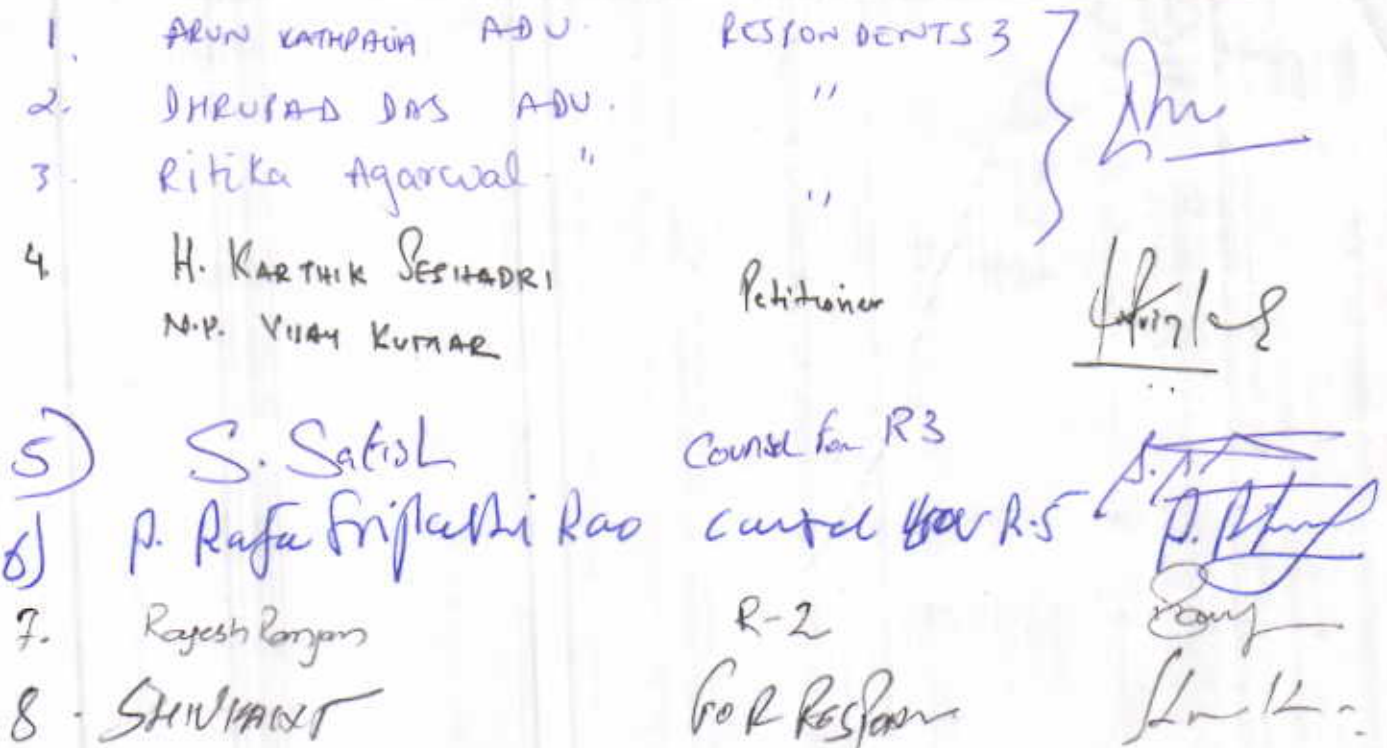 1. ARUN KATHPALIA ADV. RESPONDENTS 3
2. DHRUPAD DAS ADV. "
3. Ritika Agarwal " "
4 H. KARTHIK SESHADRI Petitioner
N.P. VIJAY KUMAR
5) S. Satish Counsel for R3
6) P. Raja Sripathi Rao counsel for R-5
7. Rajesh Ranjan R-2
8. SHIVKANT FOR